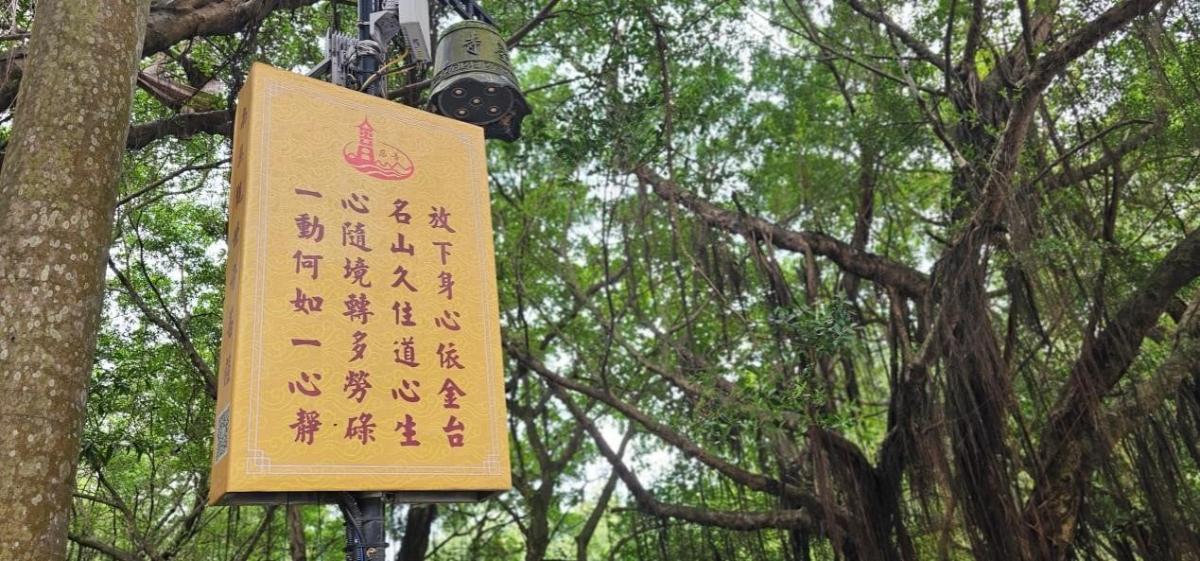 放下身心依金台
名山久住道心生
心隨境轉多勞碌
一動何如一心靜